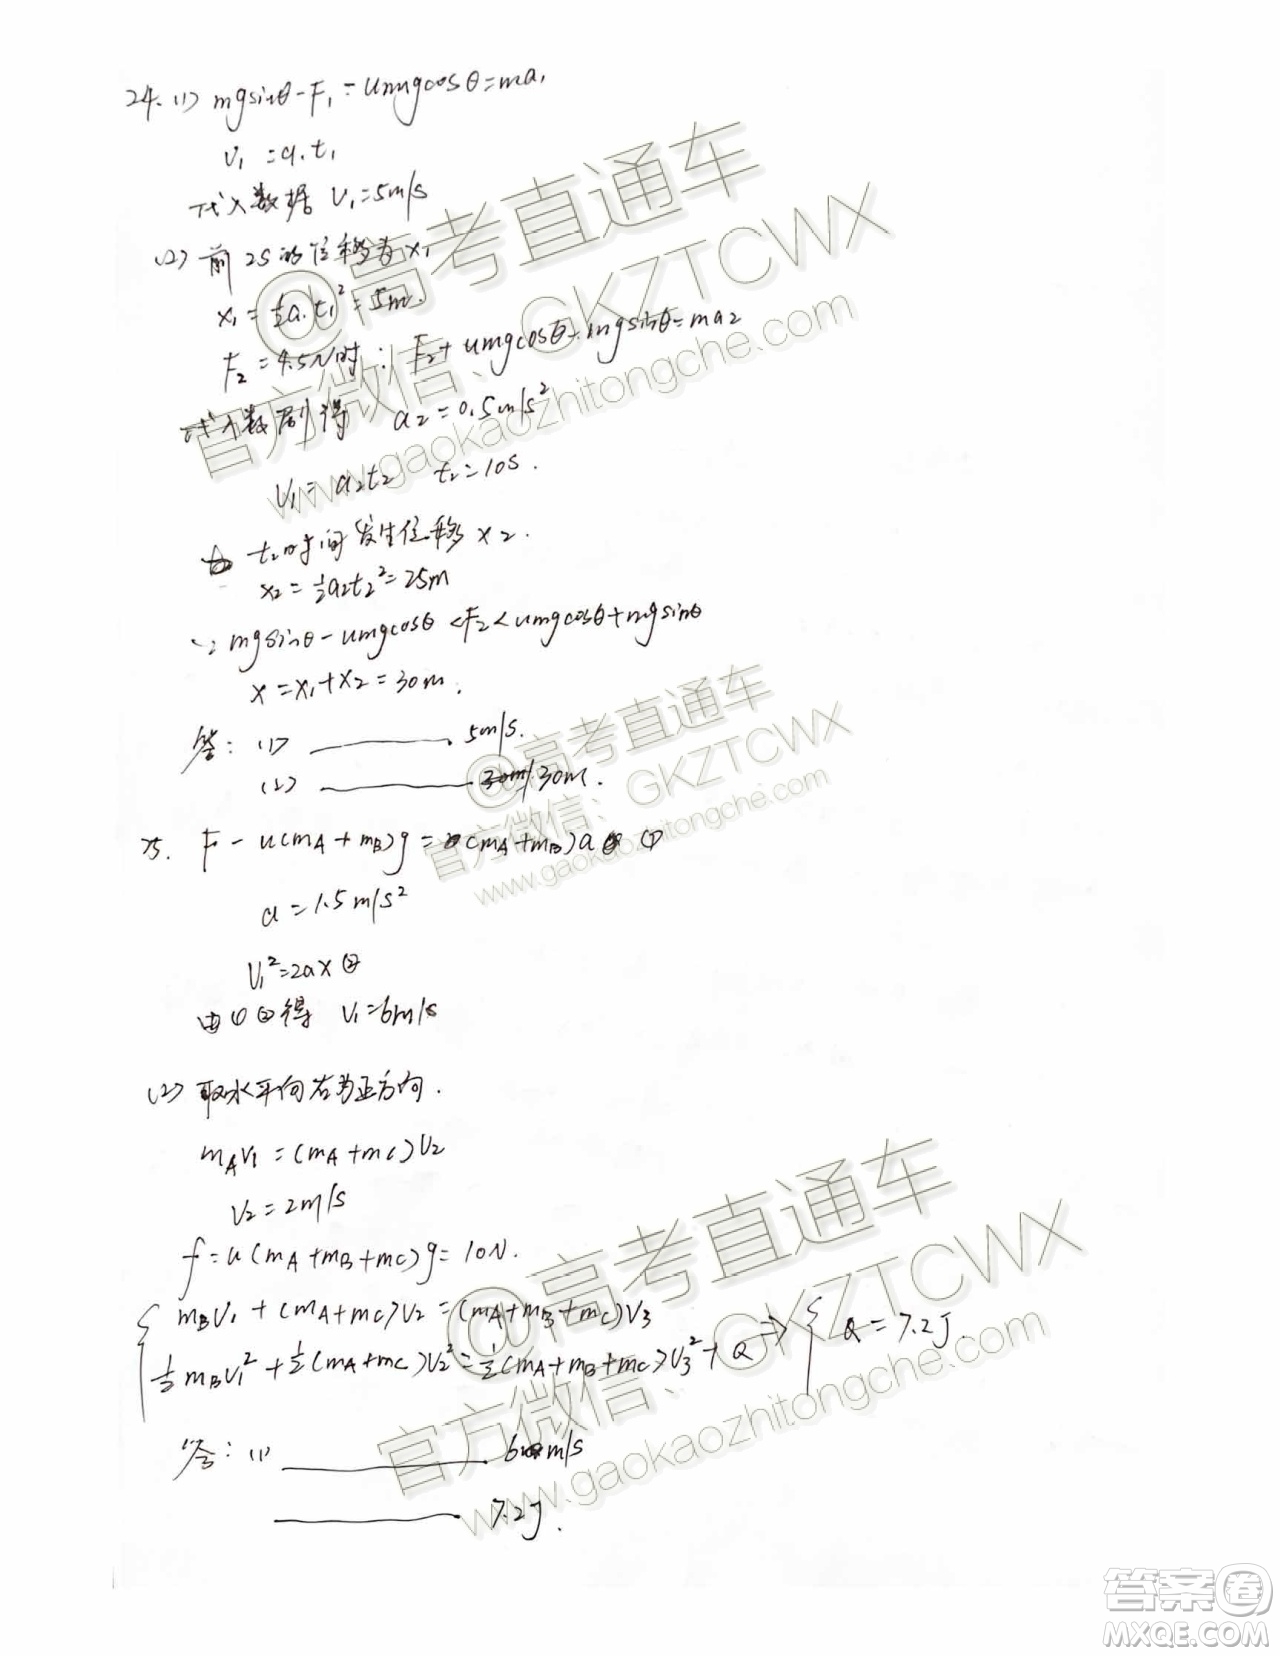 24. (1) mgsinθ-F₁-umgcosθ=ma₁
V₁=a₁t₁
代入数据 V₁=5m/s
(2) 前2S的位移为X₁
X₁=½a₁t₁²=5m.
F₂=4.5N时: F₂+umgcosθ-mgsinθ=ma₂
代入数剧得 a₂=0.5m/s²
V₁=a₂t₂ t₂=10S.
t₂时间发生位移X₂.
X₂=½a₂t₂²=25m
∵mgsinθ-umgcosθ<F₂<umgcosθ+mgsinθ
X=X₁+X₂=30m.
答: (1) 5m/s.
(2) 30m/30m.
25. F-u(mA+mB)g=(mA+mB)a ①
a=1.5m/s²
V₁²=2ax ②
由①②得 V₁=6m/s
(2) 取水平向右为正方向.
mAV₁=(mA+mC)V₂
V₂=2m/s
f=u(mA+mB+mC)g=10N.
mBV₁+(mA+mC)V₂=(mA+mB+mC)V₃
½mBV₁²+½(mA+mC)V₂²=½(mA+mB+mC)V₃²+Q ⇒ { Q=7.2J.
答: (1) 6m/s
7.2J.
@高考直通车
官方微信: GKZTCWX
www.gaokaozhitongche.com
@高考直通车
官方微信: GKZTCWX
www.gaokaozhitongche.com
@高考直通车
官方微信: GKZTCWX
www.gaokaozhitongche.com
答案圈
MXQE.COM